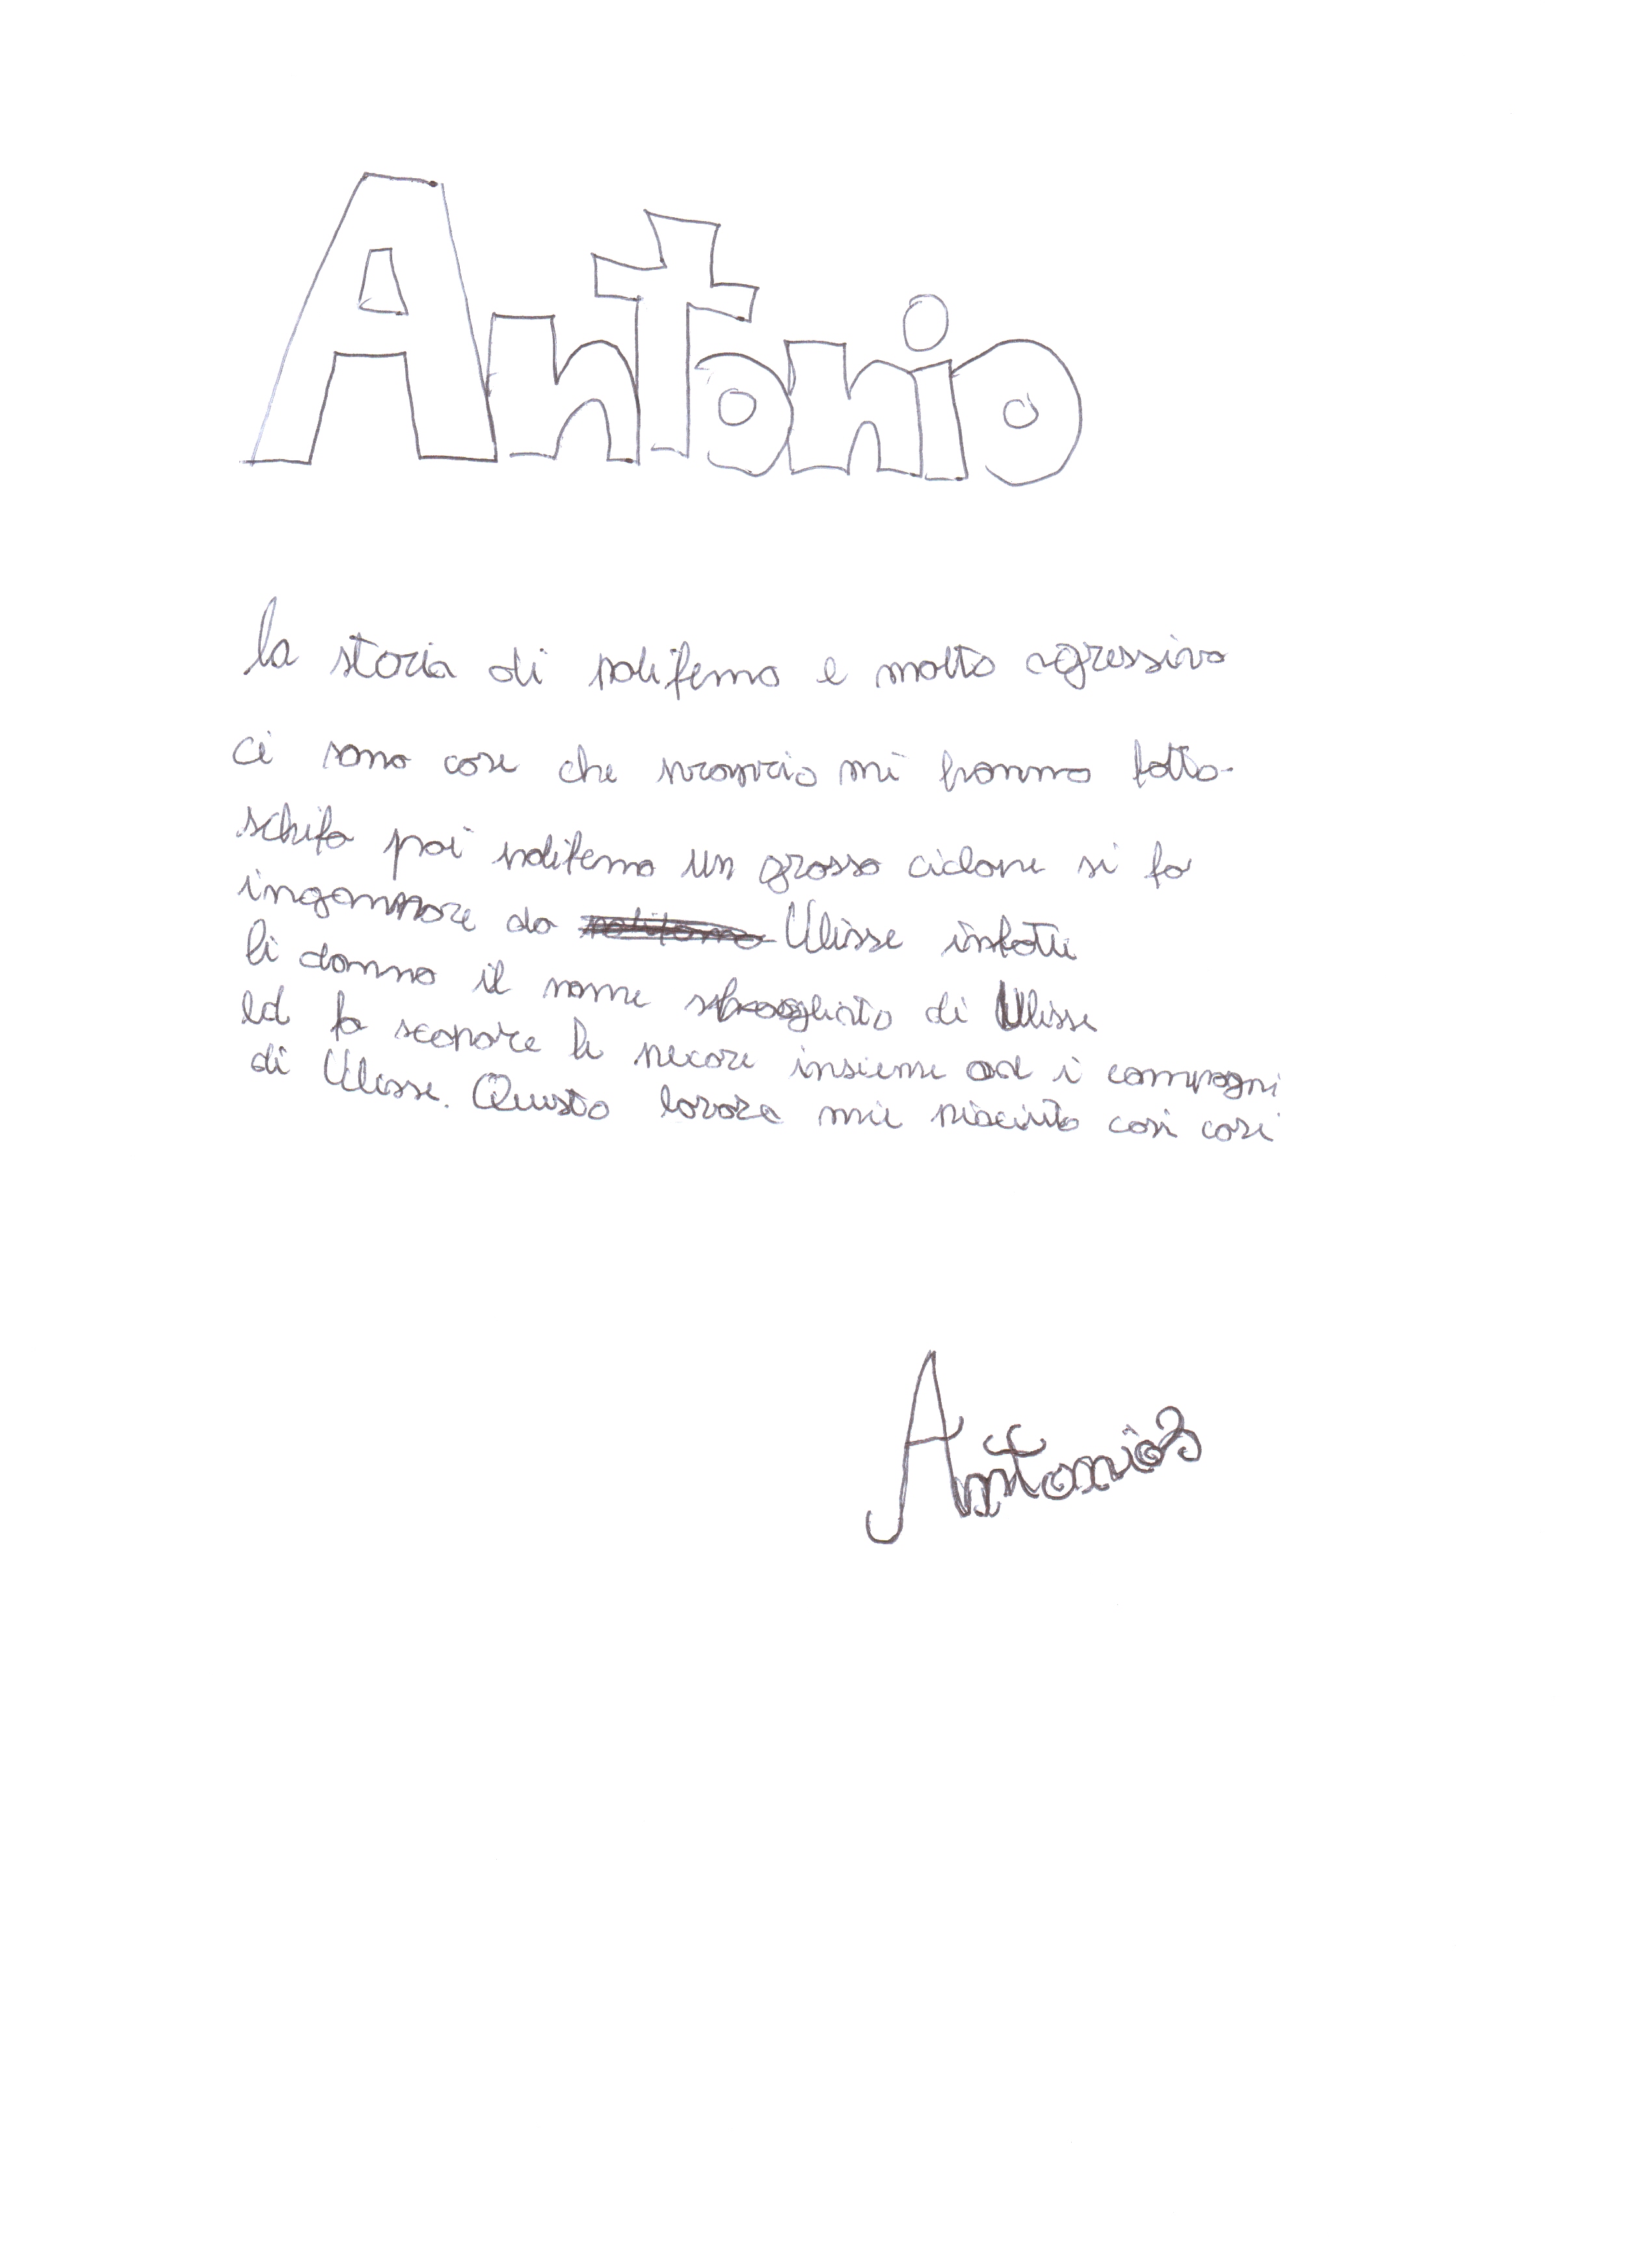 Antonio
la storia di polifemo e molto agressiva
ci sono cose che proprio mi hanno fatto
schifo poi polifemo un grosso ciclope si fa
ingannare da Ulisse infatti
li danno il nome sbagliato di Ulisse
ed fa scapare le pecore insieme ad i compagni
di Ulisse. Questo lavoro mie piaciuto cosi cosi
Antonio